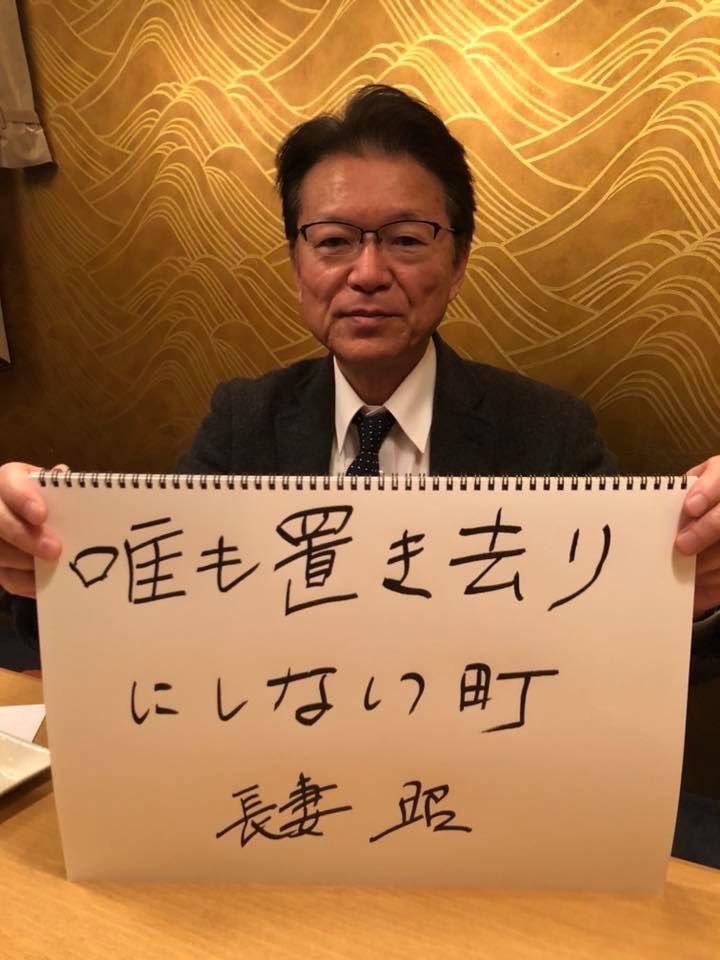 唯も置き去り
にしない町
長妻 昭